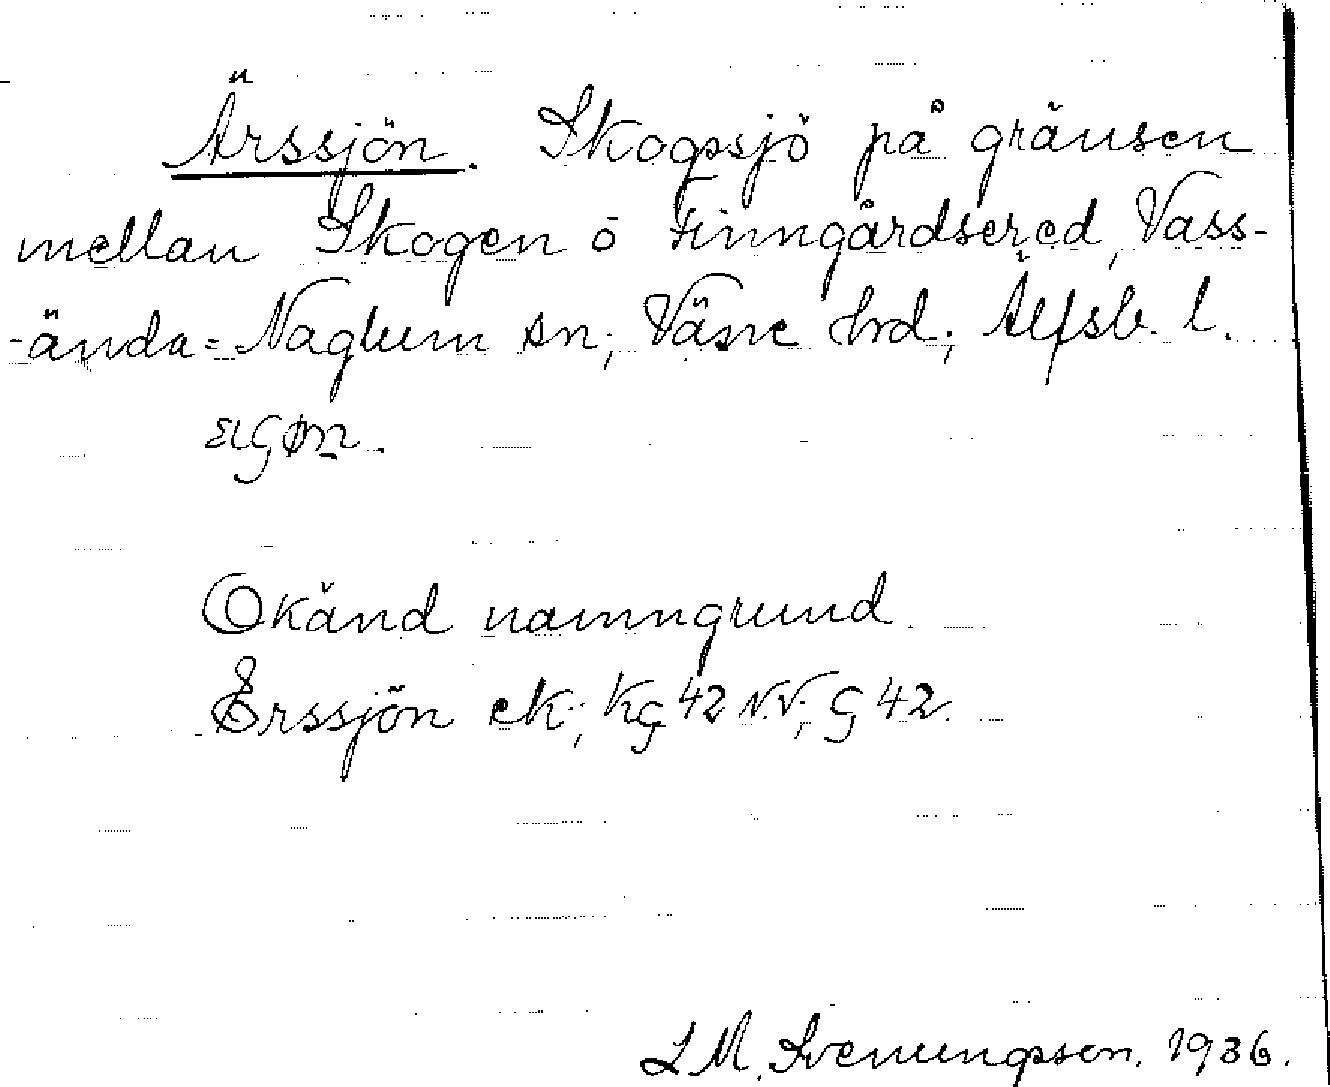 Ärssjön. Skogssjö på gränsen
mellan Skogen o Finngårdsered, Vass-
-ända=Naglum sn; Väne hrd; Älfsb. l.
Okänd namngrund
Erssjön ek; Kg 42 N.V; G 42.
L M. Svenungsson. 1936.